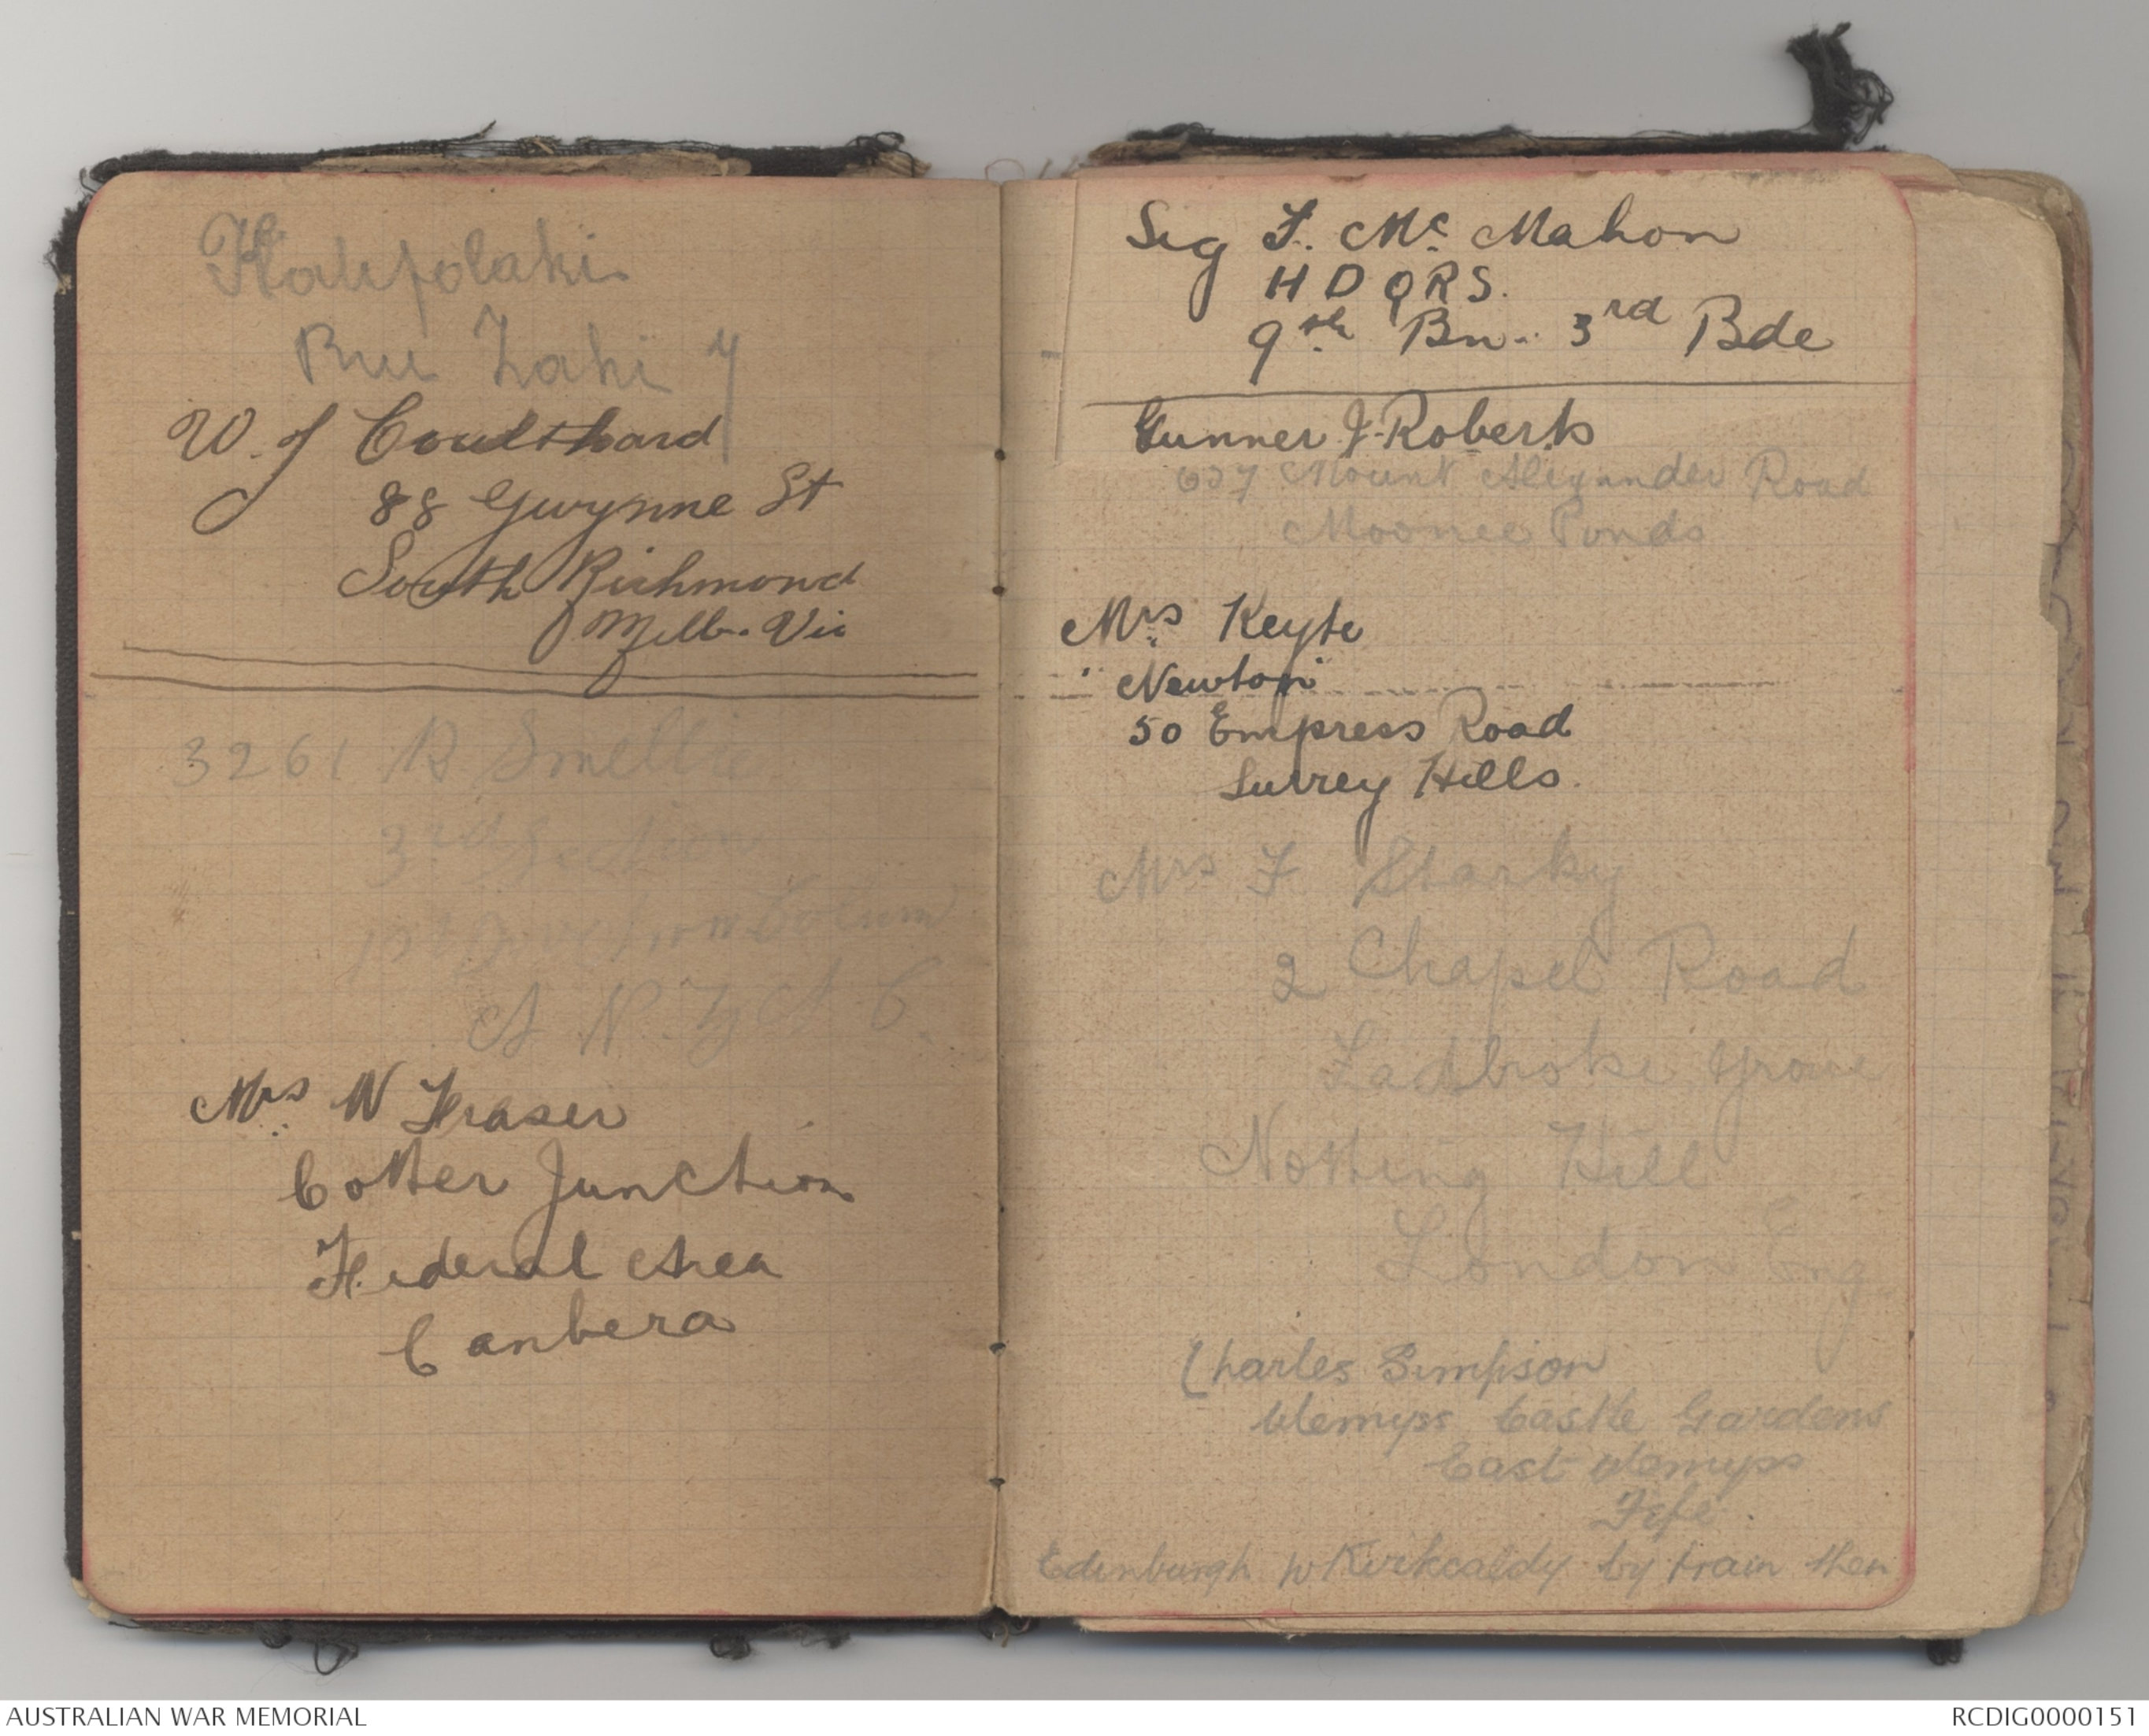 Rue Zaki 7
W. J Coulthard
88 Gwynne St
South Richmond
Melb. Vic
3261 R Smellie
3rd Section
1st Colum
A N. Z A C.
Mrs W Fraser
Cotter Junction
Federal Area
Canbera
Sig F. Mc Mahon
HDQRS.
9th Bn. 3rd Bde
Gunner J. Roberts
627 Mount Alexander Road
Moonee Ponds
Mrs Keyte
" Newton
50 Empress Road
Surrey Hills.
Mrs F Starky
2 Chapel Road
Ladbroke Grove
Notting Hill
London Eng
Charles Simpson
Wemyss Castle Gardens
East Wemyss
Fife.
Edinburgh to Kirkcaldy by train then
AUSTRALIAN WAR MEMORIAL
RCDIG0000151